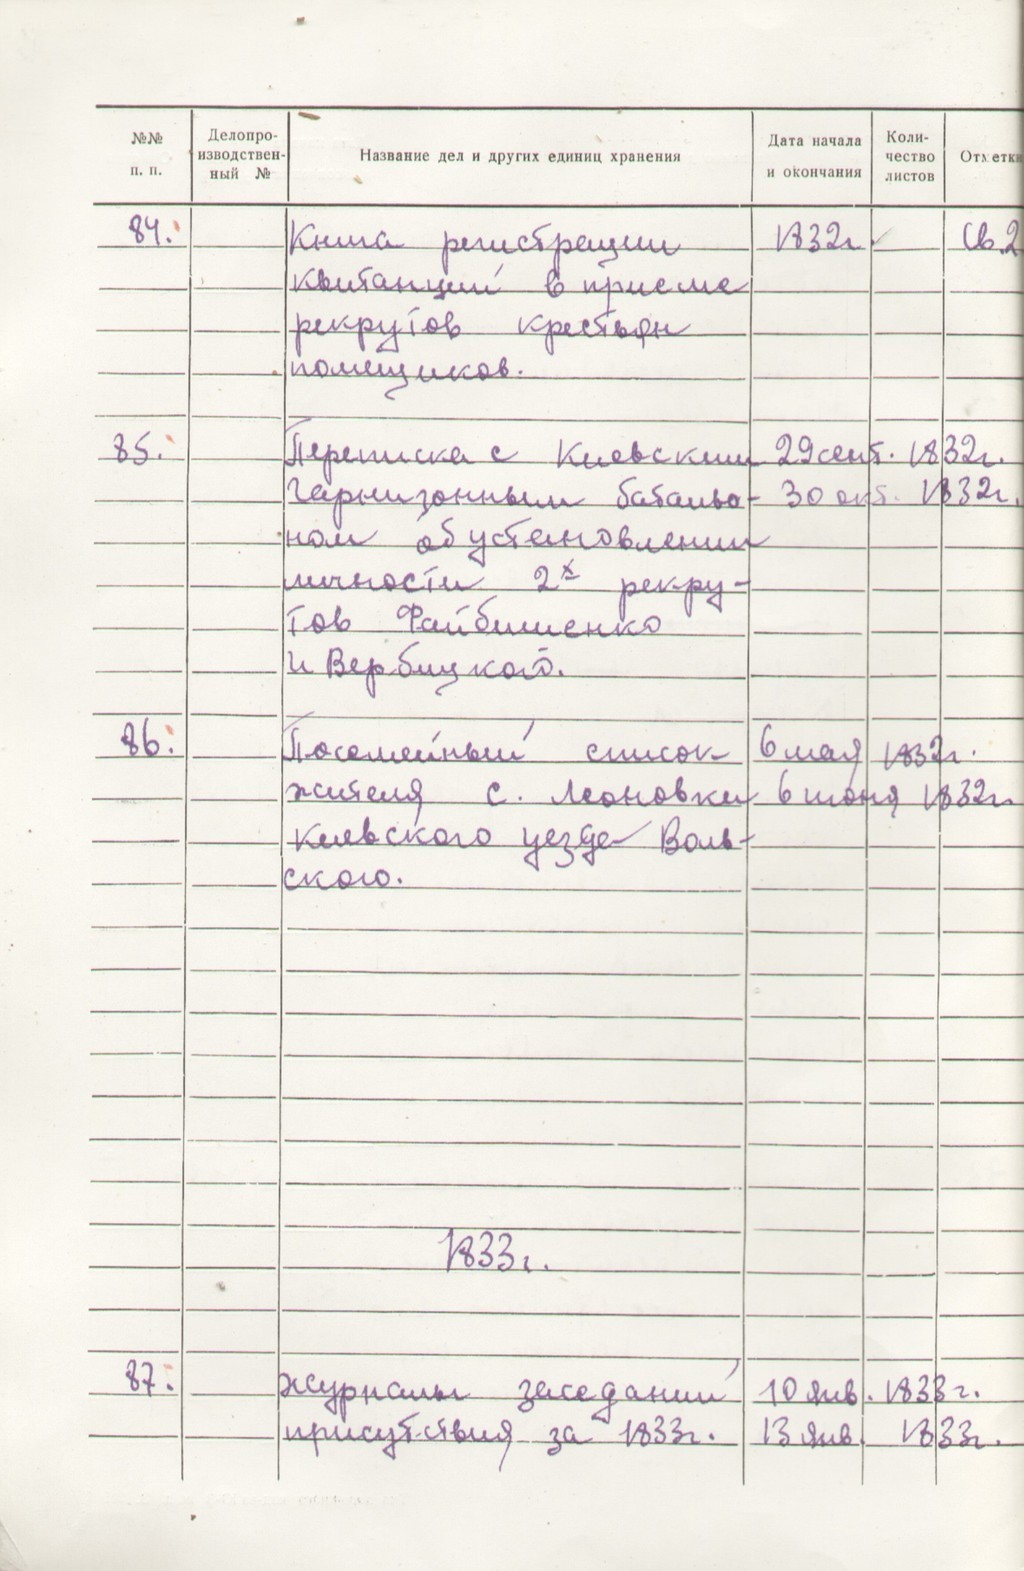 №№ п. п.
Делопро-
изводствен-
ный №
Название дел и других единиц хранения
Дата начала
и окончания
Коли-
чество
листов
Отметки
84. Книга регистрации 1832г. Св.2
квитанций в приеме
рекрутов крестьян
помещиков.
85. Переписка с Киевским 29 сент. 1832г.
гарнизонным батальо- 30 окт. 1832г.
ном об установлении
личности 2х рекру-
тов Файбишенко
и Вербицкого.
86. Посемейный список 6 мая 1832г.
жителя с. Леоновки 6 июня 1832г.
Киевского уезда Воль-
ского.
1833г.
87. Журналы заседаний 10 янв. 1833г.
присутствия за 1833г. 13 янв. 1833г.